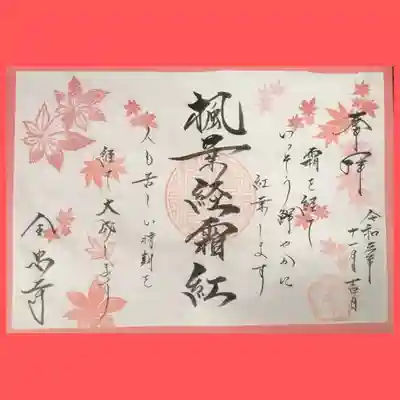 奉拝
令和年
十一月吉日
霜を経て
いっそう鮮やかに
紅葉します
楓葉経霜紅
人も苦しい時期を
経て大成します
全忠寺